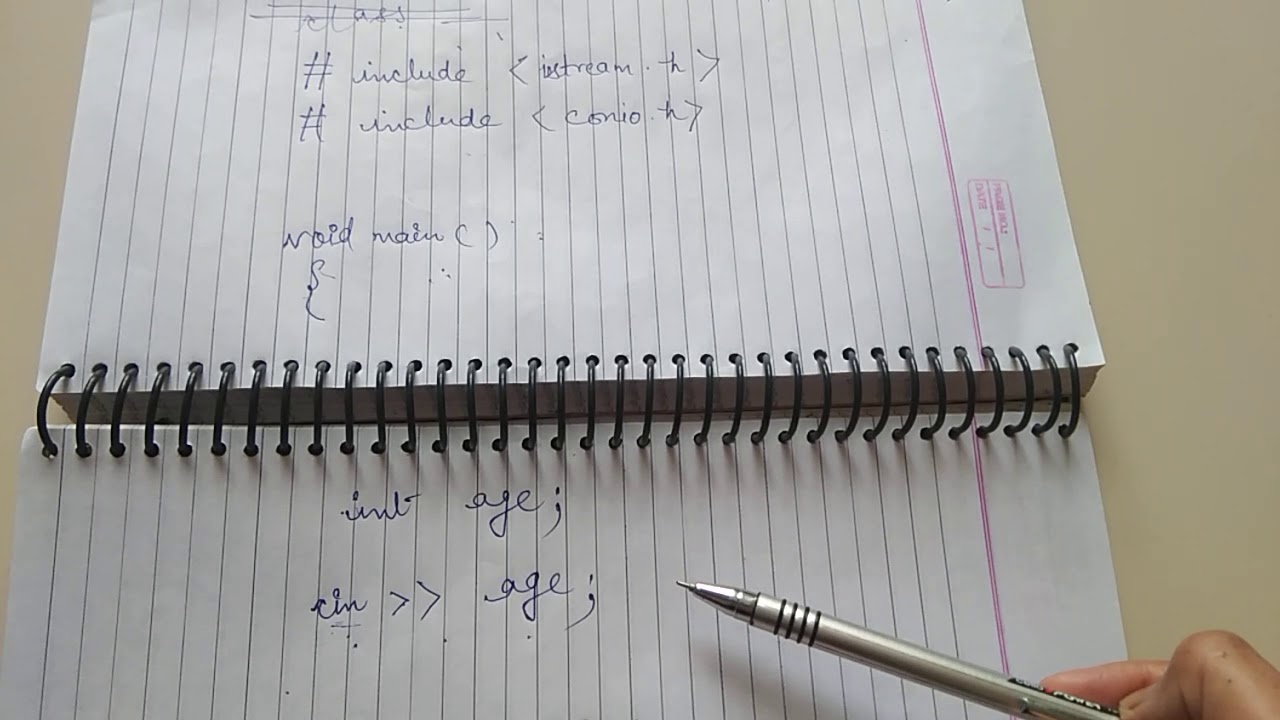 class
# include <istream.h>
# include <conio.h>
void main ( )
{
int age;
cin >> age;
PAGE NO.:
DATE: / /